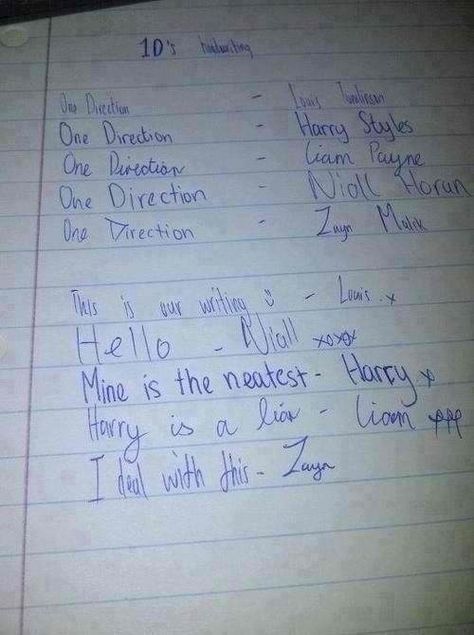 1D's handwriting
One Direction - Louis Tomlinson
One Direction - Harry Styles
One Direction - Liam Payne
One Direction - Niall Horan
One Direction - Zayn Malik
This is our writing :) - Louis .x
Hello - Niall xoxox
Mine is the neatest - Harry x
Harry is a liar - Liam xxx
I deal with this - Zayn